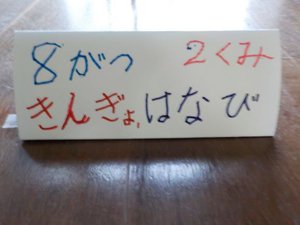 8がつ 2くみ
きんぎょ,はなび